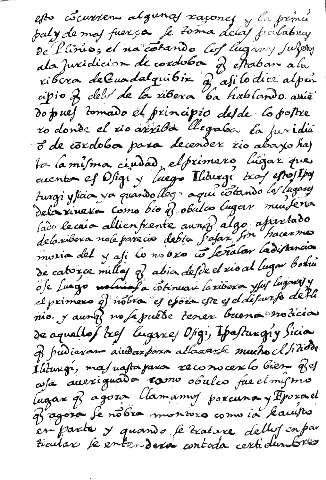 esto ocurren algunas raçones y la princi
pal y de mas fuerça se toma de las palabras
de Plinio, el va contando los lugares sujetos
a la juridicion de cordoba q̃ estaban a la
ribera de Guadalquibir q̃ asi lo dice al prin
cipio q̃ de los de la ribera ba hablando. avie
do pues tomado el principio desde lo postre
ro donde el rio arriba llegaba la juridici
õ de cordoba para decender rio abaxo has
ta la misma ciudad, el primero lugar que
cuenta es Osigi y luego Iliturgi tras estos Ipas
turgi y sicia ya quando llego aqui cõtando los lugares
de la rivera como bio q̃ obulco lugar muy señ
lado le caia alli en frente aunq̃ algo apartado
de la ribera no le parecio debia pasar sin hacer me
moria del y asi lo nõbro cõ señalar la distancia
de catorce millas q̃ abia desde el rio al lugar bolui
ose luego a cõtinuar la ribera y sus lugares y
el primero q̃ nõbra es epora este es el discurso de Pli
nio. y aunq̃ no se puede tener buena noticia
de aquellos tres lugares Osigi, Ipasturgi y Sicia
q̃ pudieran ayudar para allarse mucho el sitio de
Iliturgi, mas basta para reconocerlo bien q̃ es
cosa averiguada como obulco fue el mismo
lugar q̃ agora llamamos porcuna y Epora el
q̃ agora se nõbra montoro como ia se a visto
en parte y quando se tratare dellos en par
ticular se entendera con toda certidumbre